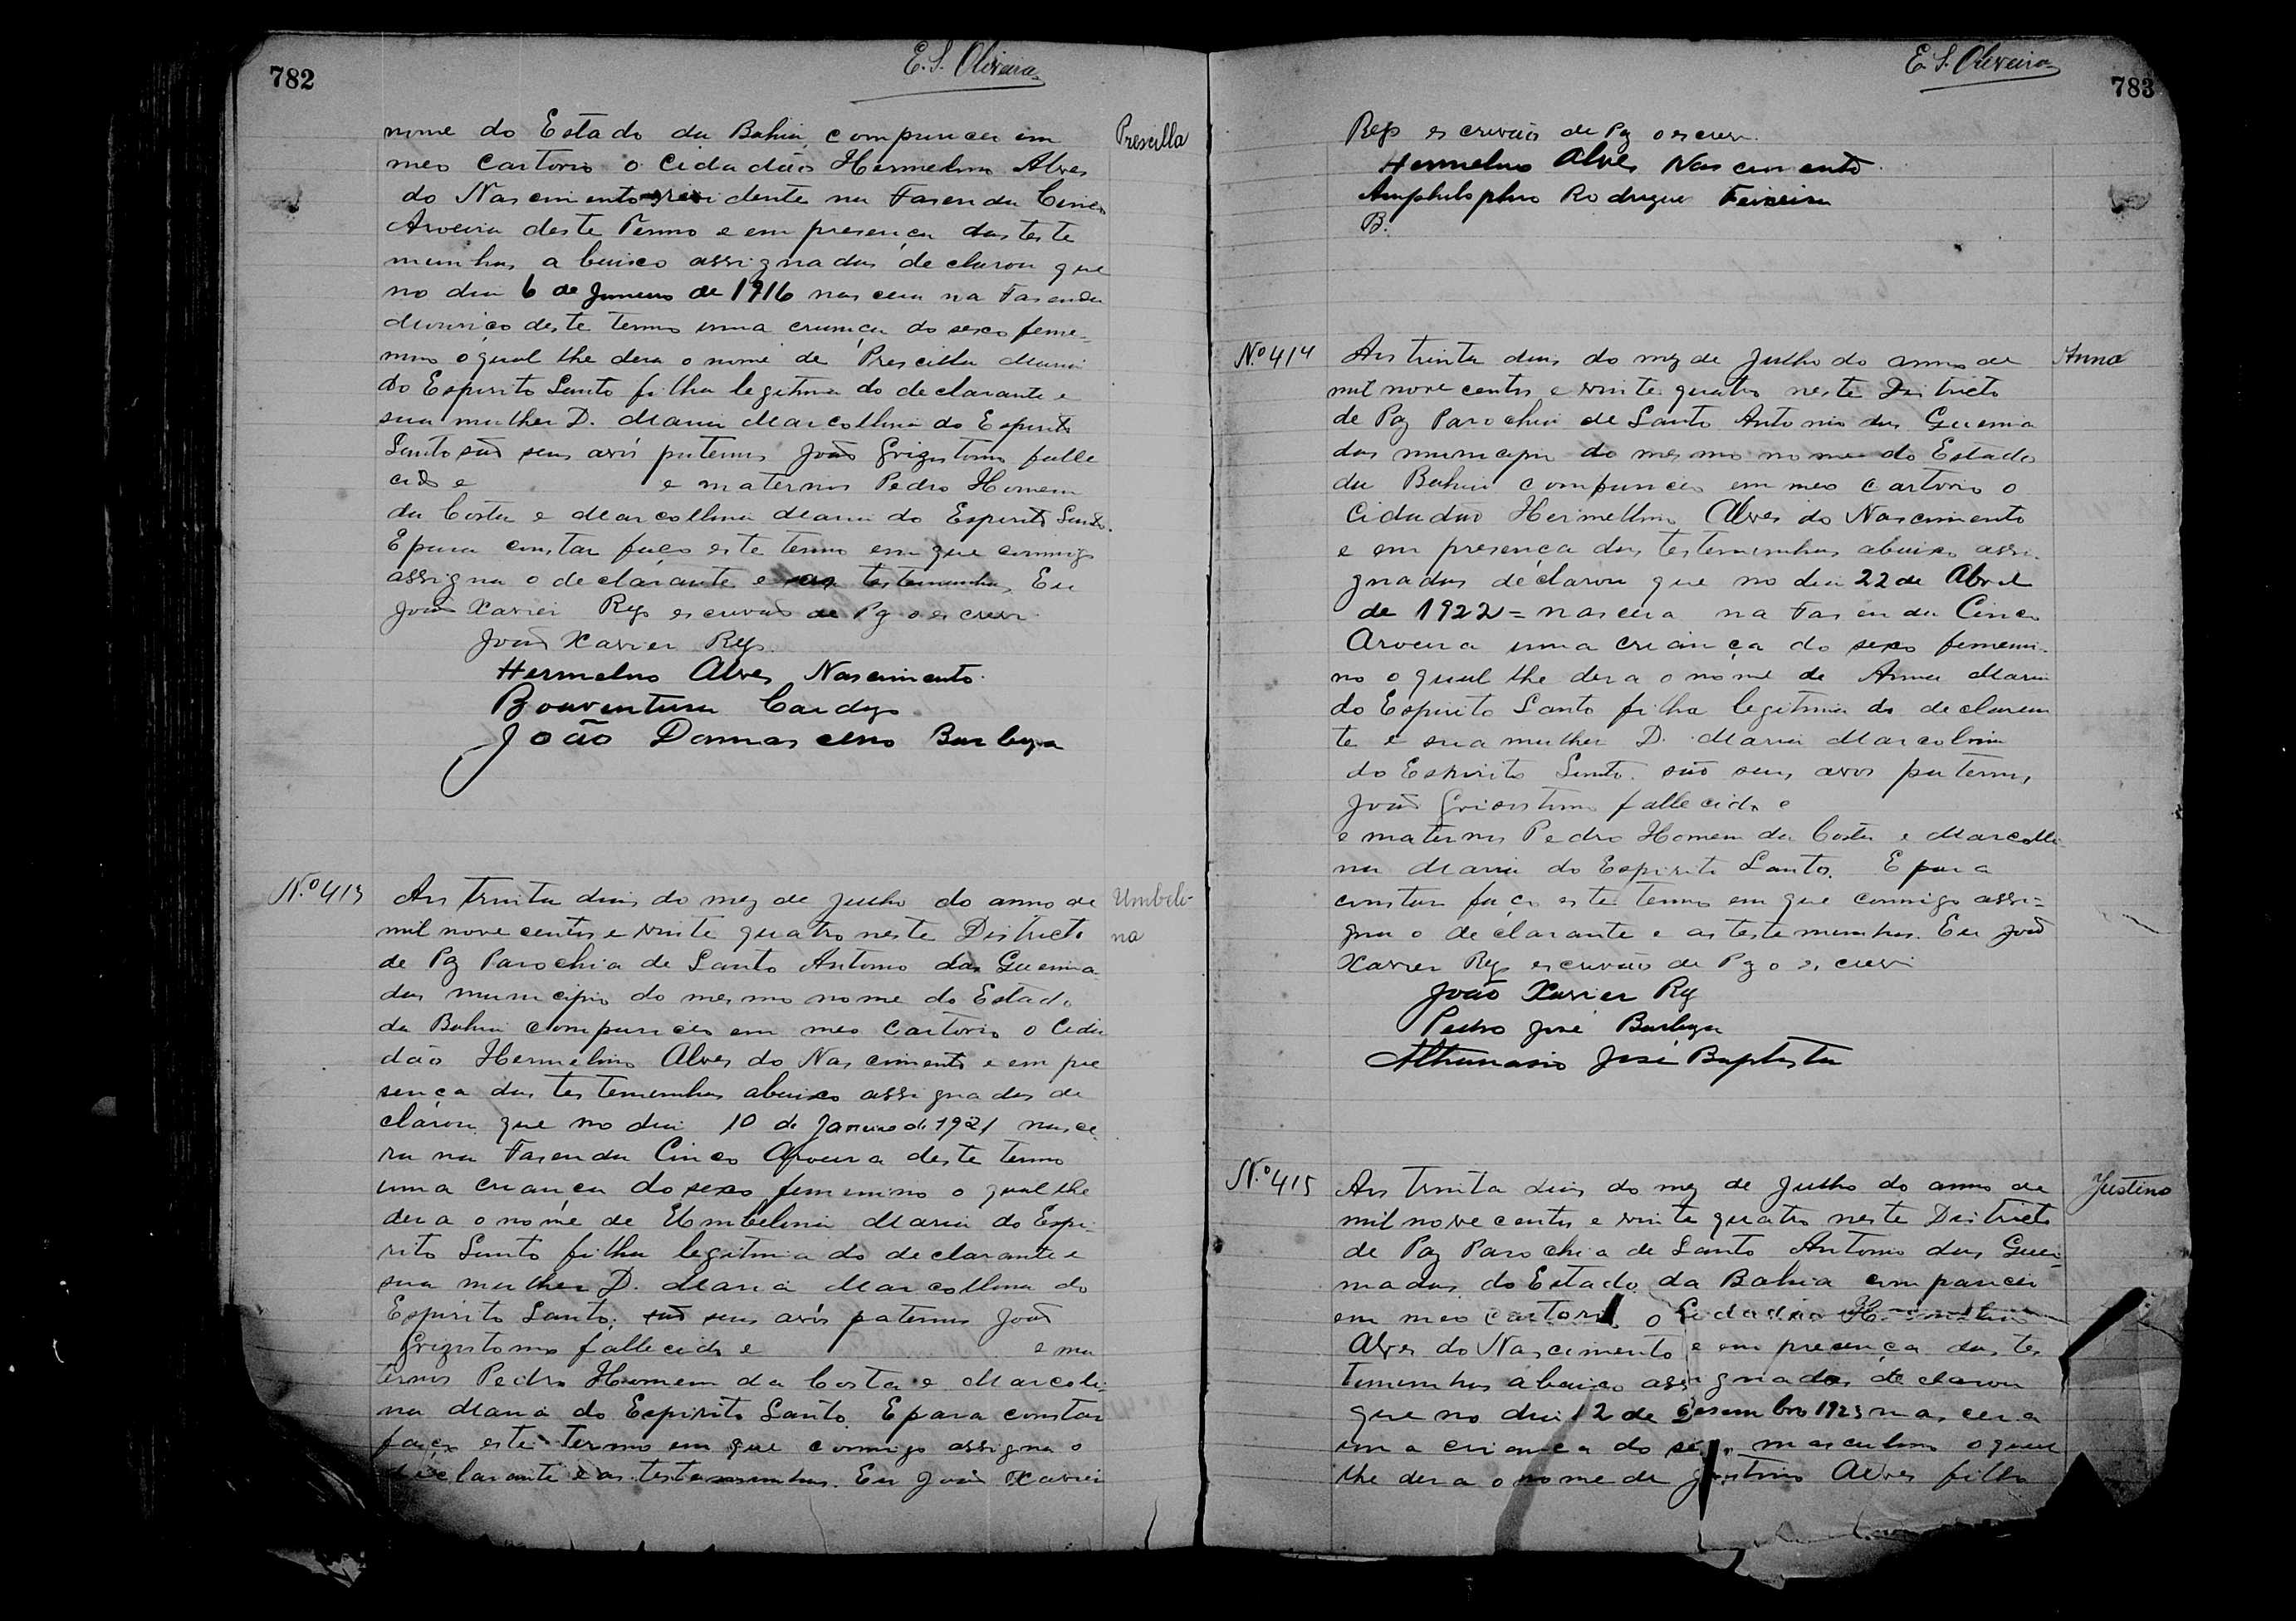 782
E. S. Oliveira
nome do Estado da Bahia, compareceu em
Prescilla
meo Cartorio o Cidadão Hermelino Alves
do Nascimento residente na Fasenda Cinco
Aroeira deste Termo e em presença das teste
munhas abaixo assignadas, declarou que
no dia 6 de Janeiro de 1916 nasceu na Fasenda
deste termo uma criança do sexo feme-
nino o qual lhe dera o nome de Prescilla Maria
do Espirito Santo filha legitima do declarante e
sua mulher D. Maria Marcollina do Espirito
Santo são seus avós paternos João Grizostomo falle
cido e e maternos Pedro Homem
da Costa e Marcollina Maria do Espirito Santo.
E para constar faço este termo em que commigo
assigna o declarante e as testemunhas, Eu
João Xavier Reys escrivão de Paz o escrevi
João Xavier Reys
Hermelino Alves Nascimento
Boaventura Cardozo
João Damasceno Barboza
Nº 413
Umbeli-
na
Aos trinta dias do mez de Julho do anno de
mil nove centos e vinte quatro neste Districto
de Paz Parochia de Santo Antonio das Queima
das municipio do mesmo nome do Estado
da Bahia compareceo em meo Cartorio o Cida
dão Hermelino Alves do Nascimento e em pre
sença das testemunhas abaixo assignadas de
clarou que no dia 10 de Janeiro de 1921 nasce
ra na Fasenda Cinco Aroeira deste termo
uma criança do sexo femenino o qual lhe
dera o nome de Umbelina Maria do Espi
rito Santo filha legitima do declarante e
sua mulher D. Maria Marcollina do
Espirito Santo, são seus avós paternos João
Grizostomo fallecido e e ma
ternos Pedro Homem da Costa e Marcoli-
na Maria do Espirito Santo. E para constar
faço este termo em que commigo assigna o
declarante e as testemunhas. Eu João Xavier
E. S. Oliveira
783
Reys escrivão de Paz o escrevi
Hermelino Alves Nascimento
Amphilophio Rodrigues Teixeira
B.
Nº 414
Anna
Aos trinta dias do mez de Julho do anno de
mil nove centos e vinte quatro neste Districto
de Paz Parochia de Santo Antonio das Queima
das municipio do mesmo nome do Estado
da Bahia compareceo em meo Cartorio o
Cidadão Hermellino Alves do Nascimento
e em presença das testemunhas abaixo assi-
gnadas declarou que no dia 22 de Abril
de 1922 = nascera na Fasenda Cinco
Aroeira uma criança do sexo femeni-
no o qual lhe dera o nome de Anna Maria
do Espirito Santo filha legitima do declaran
te e sua mulher D. Maria Marcolina
do Espirito Santo. são seus avos paternos,
João Grisostimo fallecido e
e maternos Pedro Homem da Costa e Marcolli
na Maria do Espirito Santo. E para
constar faço este termo em que commigo assi=
gna o declarante e as testemunhas. Eu João
Xavier Reys escrivão de Paz o escrevi
João Xavier Rey
Pedro José Barboza
Athanasio José Baptista
Nº 415
Justino
Aos trinta dias do mez de Julho do anno de
mil nove centos e vinte quatro neste Districto
de Paz Parochia de Santo Antonio das Quei-
madas do Estado da Bahia compareceu
em meo cartorio o Cidadão Hermelino
Alves do Nascimento e em presença das tes
temunhas abaixo assignadas declarou
que no dia 12 de Desembro 1923 nascera
uma criança do sexo masculino o qual
lhe dera o nome de Justino Alves filho